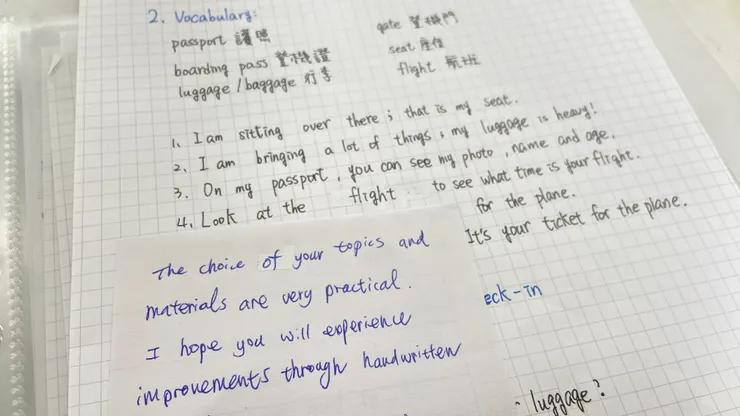 2. Vocabulary:
passport 護照
boarding pass 登機證
luggage / baggage 行李
gate 登機門
seat 座位
flight 航班
1. I am sitting over there; that is my seat.
2. I am bringing a lot of things; my luggage is heavy!
3. On my passport, you can see my photo, name and age.
4. Look at the flight to see what time is your flight.
for the plane.
It's your ticket for the plane.
eck-in
luggage?
The choice of your topics and
materials are very practical.
I hope you will experience
improvements through handwritten